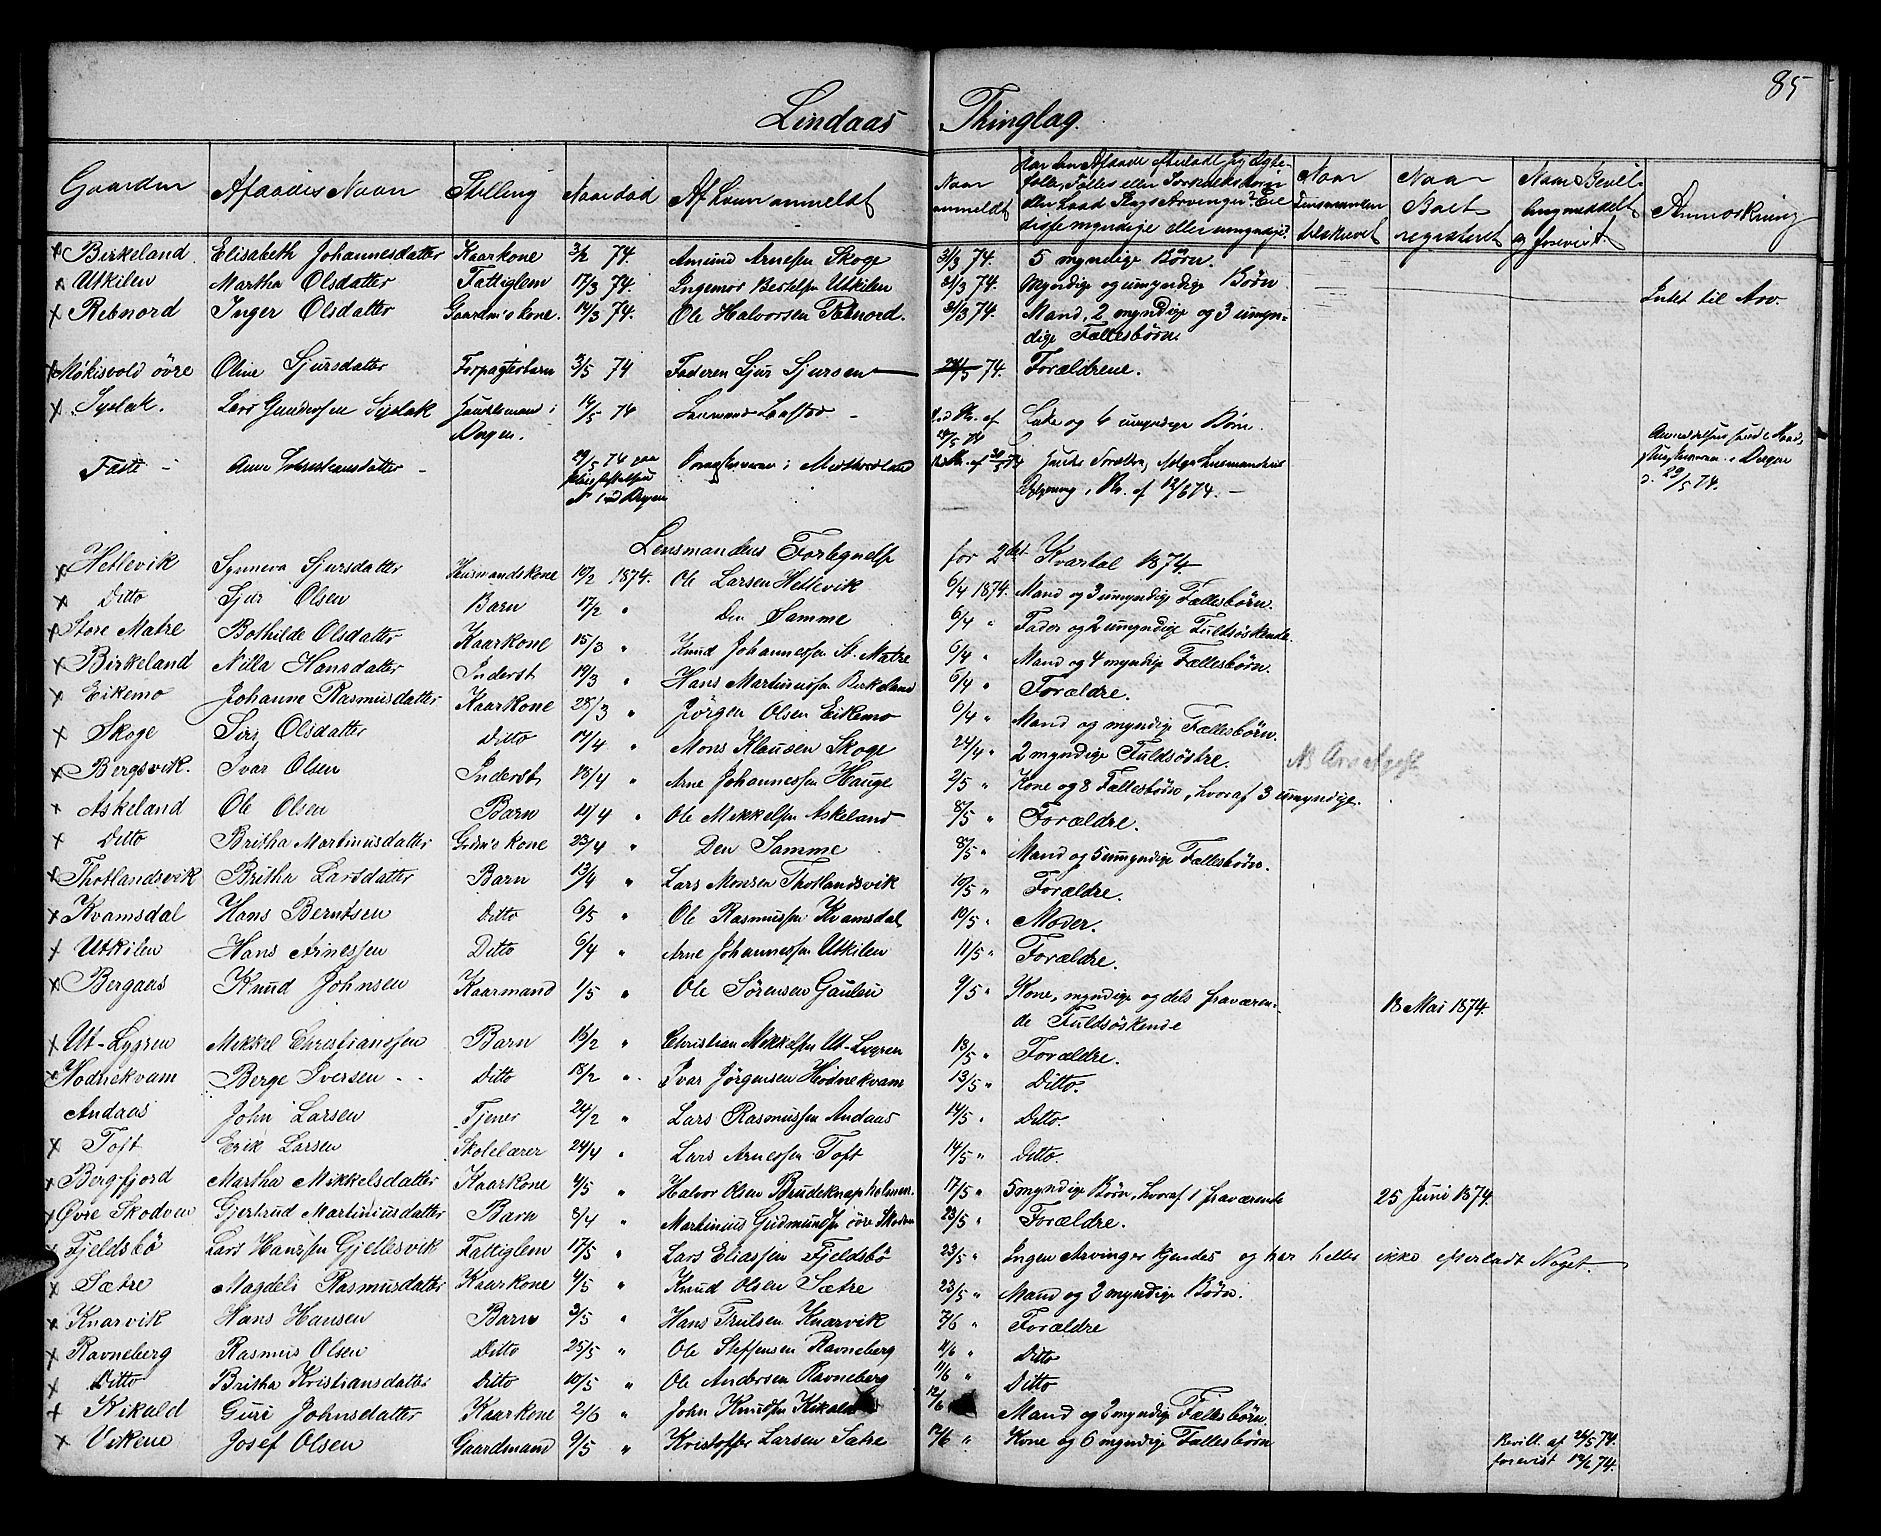 85
Lindaas Thinglag.
Gaarden Afdødes Navn Stilling Naar død Af hvem anmeldt Naar anmeldt Har den Afdøde efterladt sig Ægtefolk, Fælles eller Særkuldsbørn eller hvad Slags Arvinger? Ere disse myndige eller umyndige? Naar Lensmanden tilskrevet Naar Boet registreret Naar Bevilling meddelt og forevist Anmærkning
x Birkeland Elisabeth Johannesdatter Kaarkone 3/2 74. Amund Arnessen Skoge 31/3 74. 5 myndige Børn.
x Utkilen Martha Olsdatter Fattiglem 17/3 74. Ingemor Bertelsen Utkilen 31/3 74. Myndige og umyndige Børn Intet til Arv.
x Rebnord Inger Olsdatter Gaardm's Kone. 14/3 74. Ole Halvorsen Rebnord. 31/3 74. Mand, 2 myndige og 3 umyndige Fællesbørn
x Mökisvold övre Oline Sjursdatter Forpagterbarn 2/5 74 Faderen Sjur Sjursen 26/5 74. Forældrene.
x Syslak. Lars Gundersen Syslak Huusmand i Bergen. 14/5 74 Lensmand ved Skr. af 28/5 74 Enke og 4 umyndige Børn.
Faste Anne Christiansdatter 29/5 74 paa N 1 ved Bergen i Midthordland Skr. af 30/5 74 Lensmandens i Skr. af 12/6 74. i Bergen d. 29/5 74.
Lensmandens Fortegnelse for 2det Kvartal 1874.
x Hetlevik Synneva Sjursdatter Huusmandskone 10/2 1874. Ole Larsen Hetlevik 6/4 1874. Mand og 3 umyndige Fællesbørn.
x Ditto Sjur Olsen Barn 17/2 " Den Samme 6/4 " Fader og 2 umyndige Fuldsøskende.
x Store Matre Bothilde Olsdatter Kaarkone 15/3 " Knud Johannessen St. Matre 6/4 " Mand og 4 myndige Fællesbørn.
x Birkeland Nilla Hansdatter Inderst 19/3 " Hans Martinussen Birkeland 6/4 " Forældre.
x Eikemo Johanne Rasmusdatter Kaarkone 28/3 " Jörgen Olsen Eikemo 6/4 " Mand og myndige Fællesbørn.
x Skoge Siri Olsdatter Ditto 14/4 " Mons Klausen Skoge 24/4 " 2 myndige Fuldsøstre.
x Bergsvik. Ivar Olsen Inderst 15/4 " Arne Johannessen Hauge 2/5 " Kone og 8 Fællesbørn, hvoraf 3 umyndige.
x Askeland Ole Olsen Barn 11/4 " Ole Mikkelsen Askeland 8/5 " Forældre.
x Ditto Britha Martinusdatter Grdm's Kone 23/4 " Den Samme 8/5 " Mand og 5 umyndige Fællesbørn.
x Thotlandsvik Britha Larsdatter Barn 13/4 " Lars Monsen Thotlandsvik 10/5 " Forældre.
x Kvamsdal Hans Berntsen Ditto 6/5 " Ole Rasmussen Kvamsdal 10/5 " Moder.
x Utkilen Hans Arnessen Ditto 6/4 " Arne Johannessen Utkilen 11/5 " Forældre.
x Bergaas Knud Johnsen Kaarmand 1/5 " Ole Sørensen Gaulen 9/5 " Kone, myndige og dels fraværende Fuldsøskende 18 Mai 1874.
x Ut-Lygren Mikkel Christianssen Barn 16/2 " Christian Mikkelsen Ut-Lygren 13/5 " Forældre.
x Hodnekvam Berge Iversen Ditto 18/2 " Ivar Jörgensen Hodnekvam 13/5 " Ditto.
Andaas John Larsen Tjener 24/2 " Lars Rasmussen Andaas 14/5 " Ditto.
x Toft Erik Larsen Skolelærer 24/4 " Lars Arnessen Toft 14/5 " Ditto.
x Bergfjord Martha Mikkelsdatter Kaarkone 4/5 " Halvor Olsen Brudeknapholmen. 17/5 " 5 myndige Børn, hvoraf 1 fraværende 25 Juni 1874.
x Øvre Skodven Gjertrud Martiniusdatter Barn 8/4 " Martinius Gudmundsen övre Skodven 23/5 " Forældre.
x Fjeldsbö Lars Hanssen Gjellesvik Fattiglem 17/5 " Lars Eliassen Fjeldsbö 23/5 " Ingen Arvinger kjendes og har heller ikke efterladt Noget.
x Sætre Magdeli Rasmusdatter Kaarkone 4/5 " Knud Olsen Sætre 23/5 " Mand og 2 myndige Børn.
x Knarvik Hans Hansen Barn 3/5 " Hans Trulsen Knarvik 7/6 " Forældre
x Ravneberg Rasmus Olsen Ditto 25/5 " Ole Steffensen Ravneberg 11/6 " Ditto
x Ditto Britha Kristiansdatter Ditto 10/5 " Ole Andersen Ravneberg 11/6 " Ditto
x Kikald Guri Johnsdatter Kaarkone 2/6 " John Knudsen Kikald 12/6 Mand og 2 myndige Fællesbørn.
x Vikene Josef Olsen Gaardmand 9/5 " Kristoffer Larsen Sætre 12/6 " Kone og 6 myndige Fællesbørn Bevill. af 26/5 74. forevist 12/6 74.